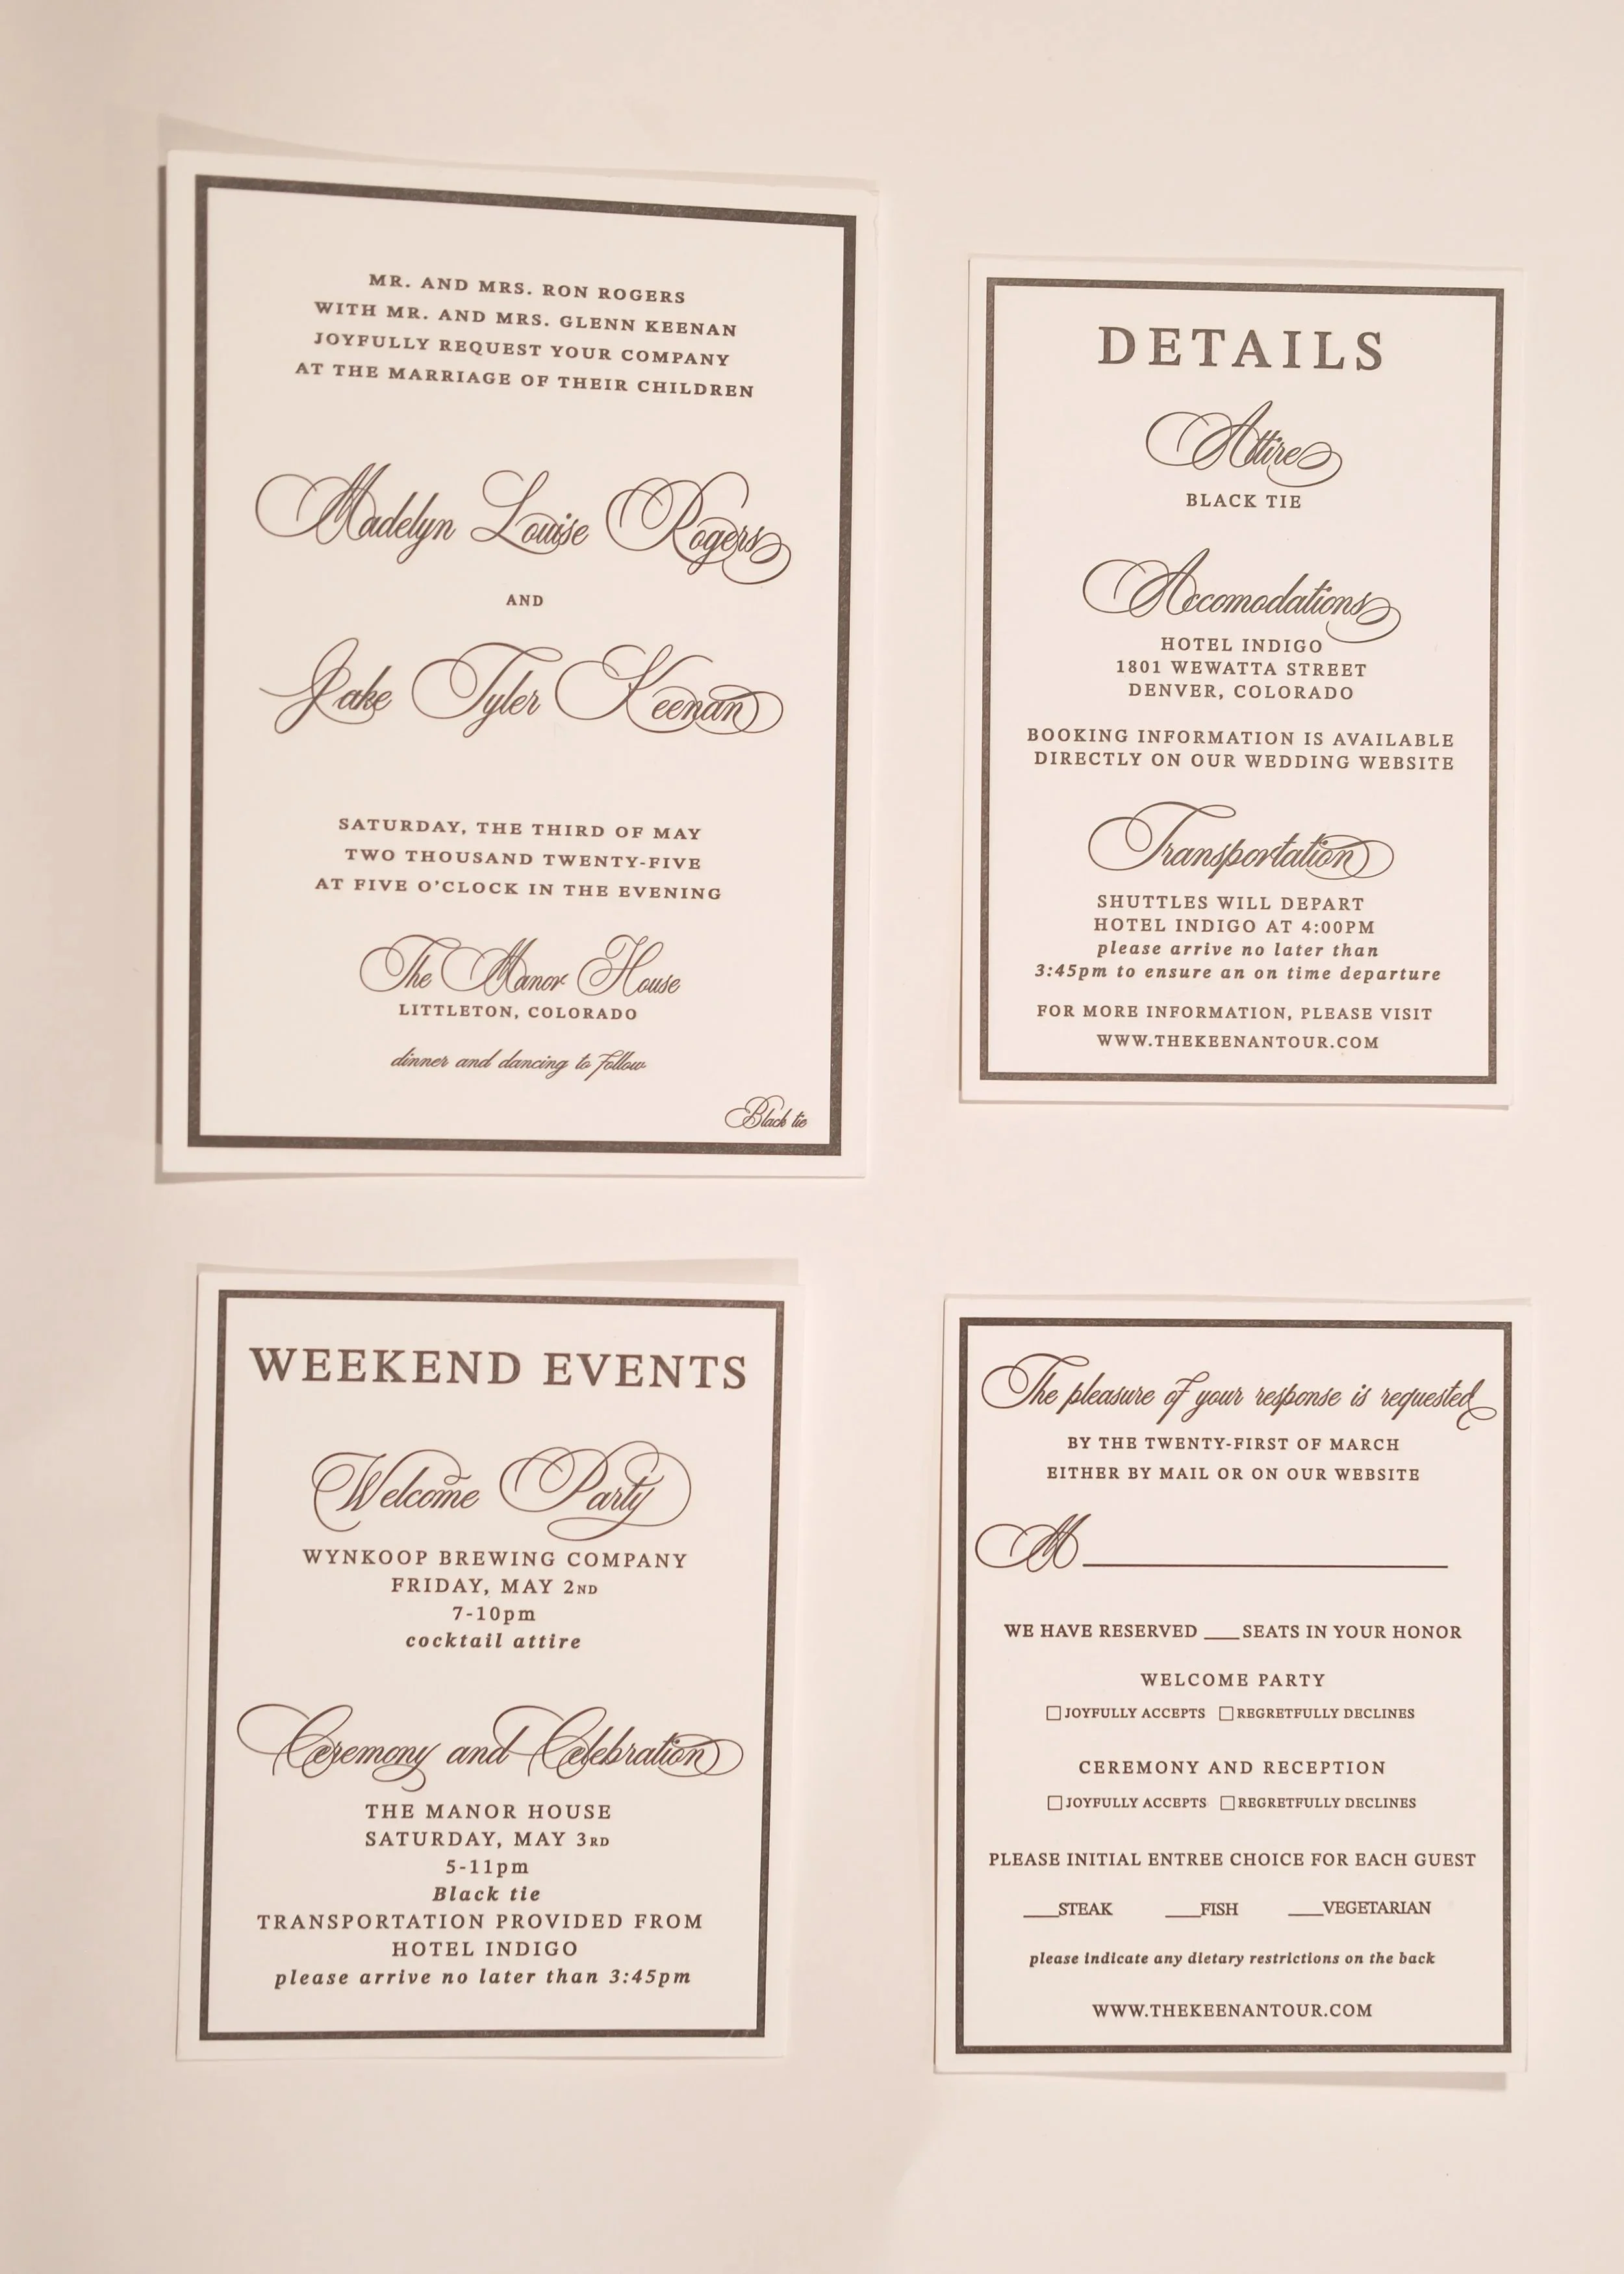 MR. AND MRS. RON ROGERS
WITH MR. AND MRS. GLENN KEENAN
JOYFULLY REQUEST YOUR COMPANY
AT THE MARRIAGE OF THEIR CHILDREN
Madelyn Louise Rogers
AND
Jake Tyler Keenan
SATURDAY, THE THIRD OF MAY
TWO THOUSAND TWENTY-FIVE
AT FIVE O'CLOCK IN THE EVENING
The Manor House
LITTLETON, COLORADO
dinner and dancing to follow
Black tie
DETAILS
Attire
BLACK TIE
Accomodations
HOTEL INDIGO
1801 WEWATTA STREET
DENVER, COLORADO
BOOKING INFORMATION IS AVAILABLE
DIRECTLY ON OUR WEDDING WEBSITE
Transportation
SHUTTLES WILL DEPART
HOTEL INDIGO AT 4:00PM
please arrive no later than
3:45pm to ensure an on time departure
FOR MORE INFORMATION, PLEASE VISIT
WWW.THEKEENANTOUR.COM
WEEKEND EVENTS
Welcome Party
WYNKOOP BREWING COMPANY
FRIDAY, MAY 2ND
7-10pm
cocktail attire
Ceremony and Celebration
THE MANOR HOUSE
SATURDAY, MAY 3RD
5-11pm
Black tie
TRANSPORTATION PROVIDED FROM
HOTEL INDIGO
please arrive no later than 3:45pm
The pleasure of your response is requested
BY THE TWENTY-FIRST OF MARCH
EITHER BY MAIL OR ON OUR WEBSITE
M____________________
WE HAVE RESERVED ___SEATS IN YOUR HONOR
WELCOME PARTY
☐JOYFULLY ACCEPTS ☐REGRETFULLY DECLINES
CEREMONY AND RECEPTION
☐JOYFULLY ACCEPTS ☐REGRETFULLY DECLINES
PLEASE INITIAL ENTREE CHOICE FOR EACH GUEST
___STEAK ___FISH ___VEGETARIAN
please indicate any dietary restrictions on the back
WWW.THEKEENANTOUR.COM